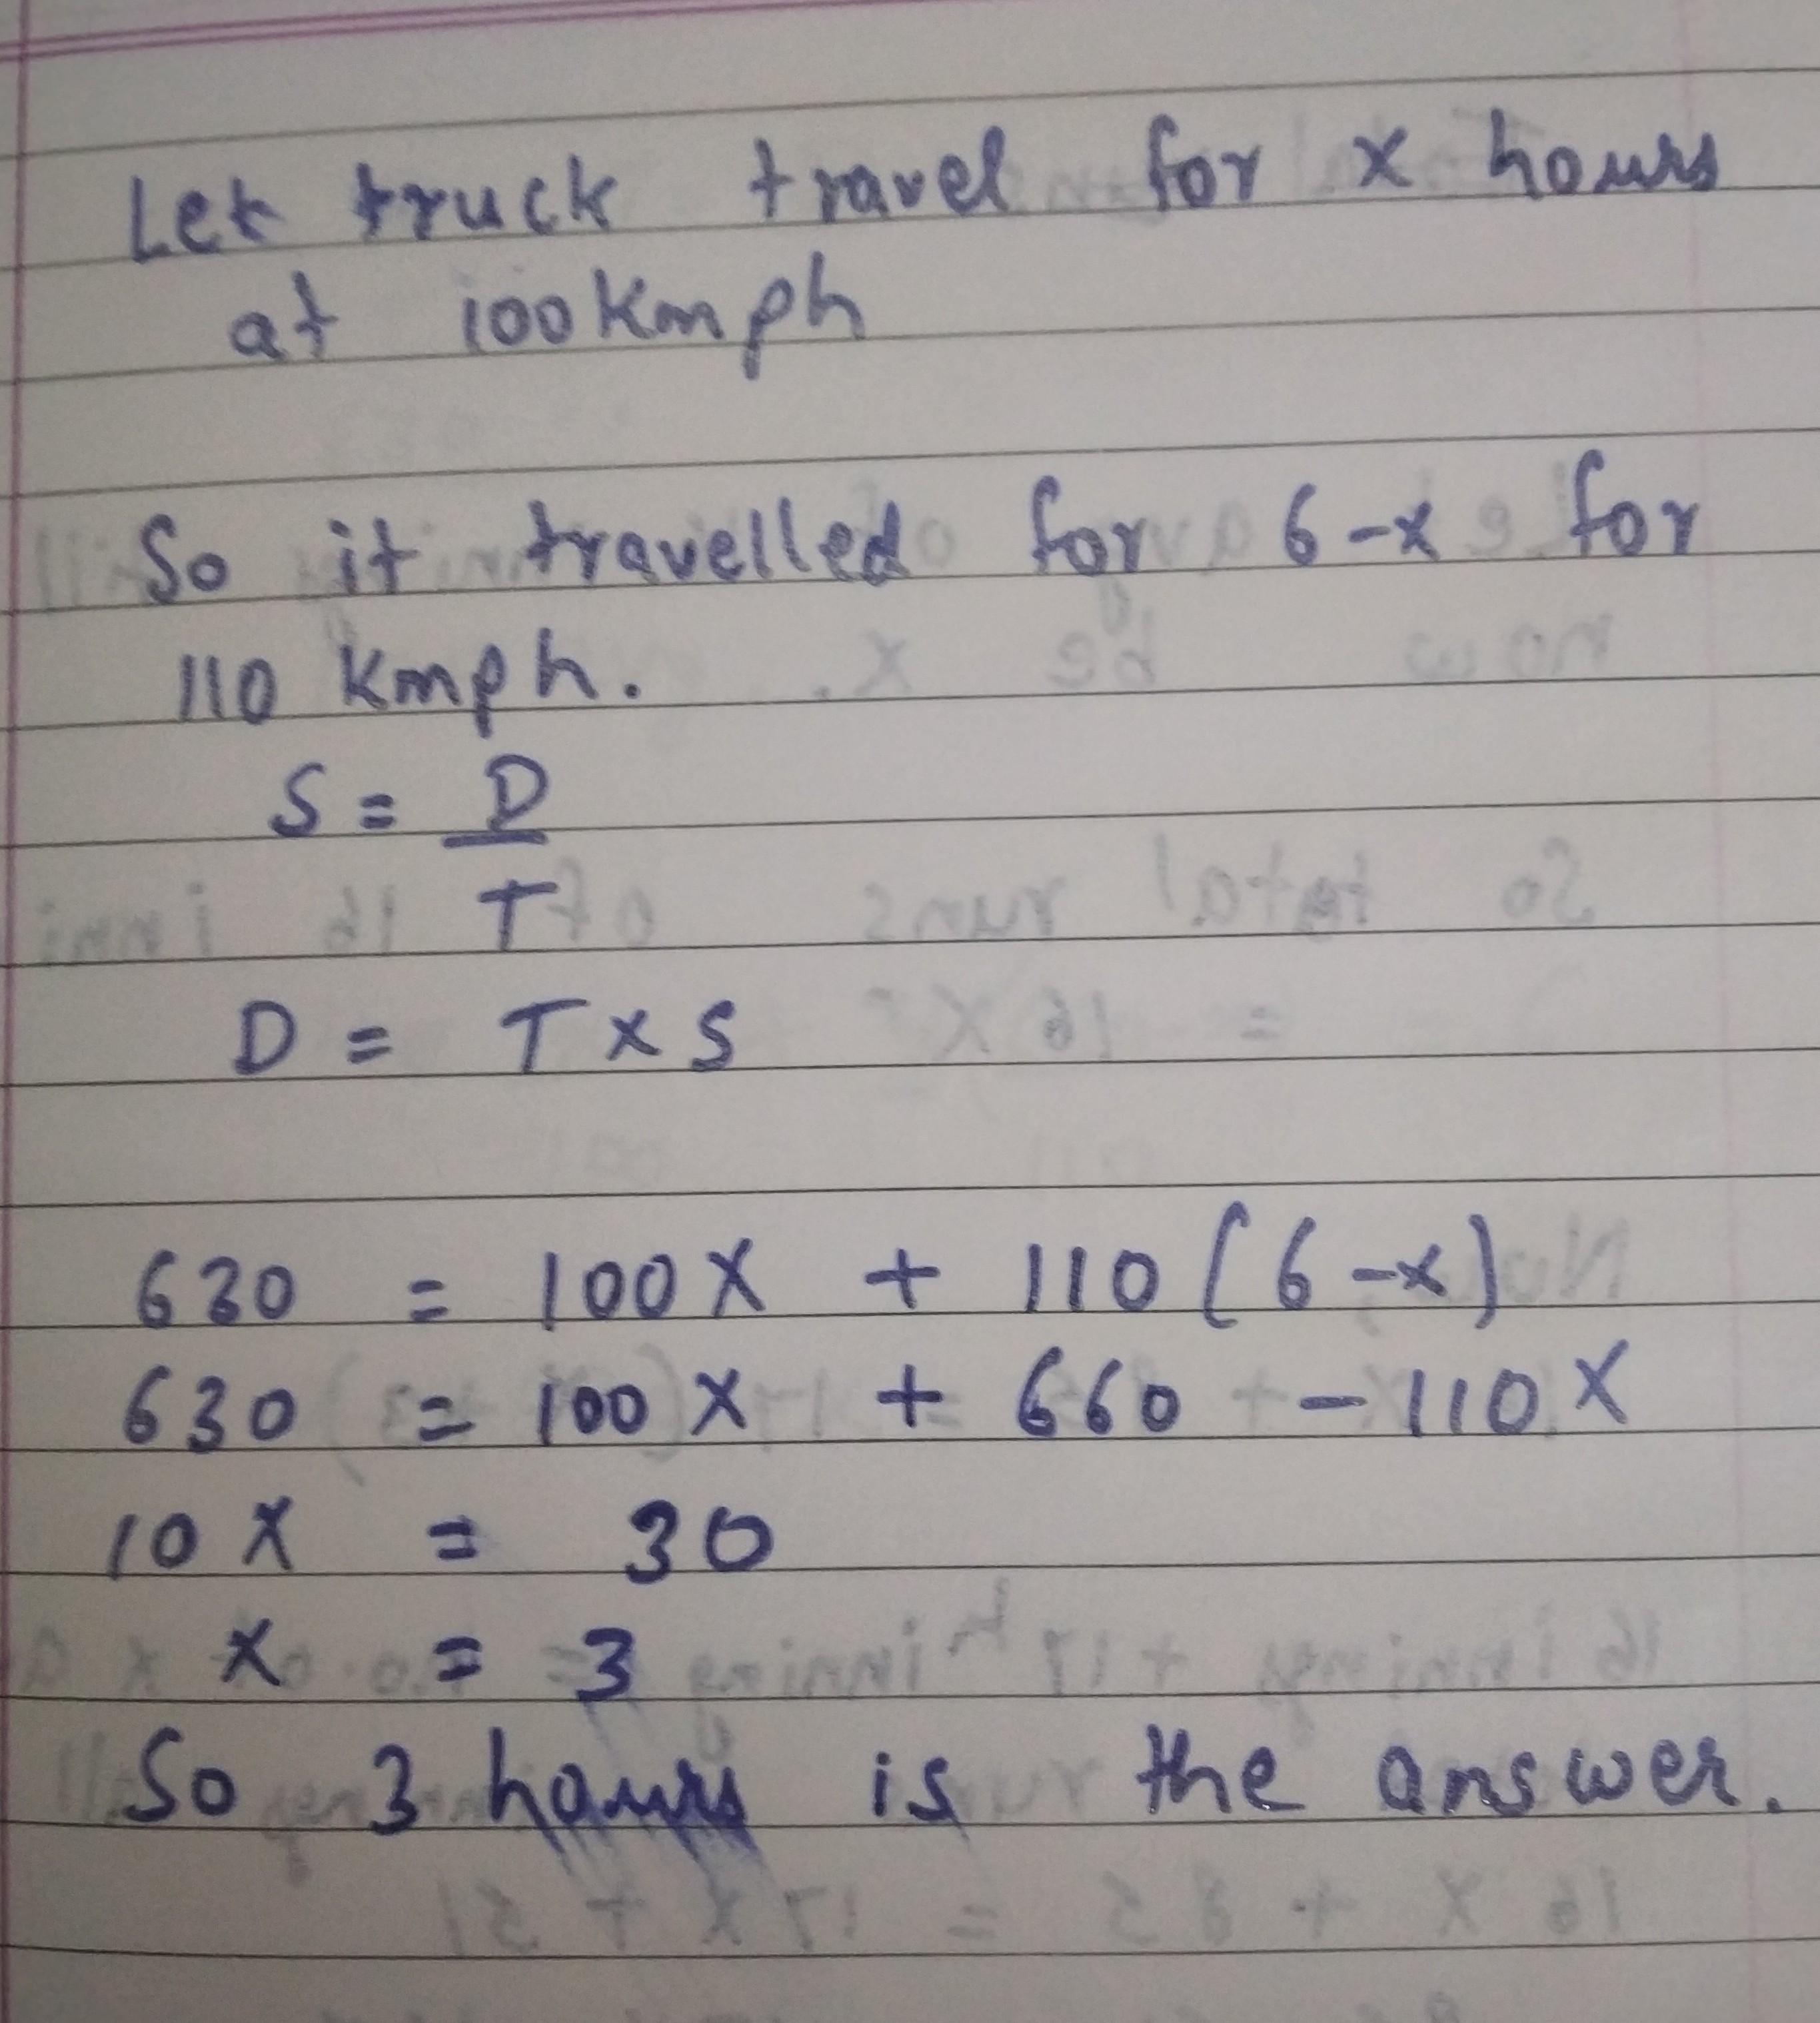 Let truck travel for x hours
at 100 Kmph
So it travelled for 6-x for
110 Kmph.
S = D
T
D = T x S
630 = 100 X + 110 (6-x)
630 = 100 X + 660 - 110 X
10 X = 30
x = 3
So 3 hours is the answer.